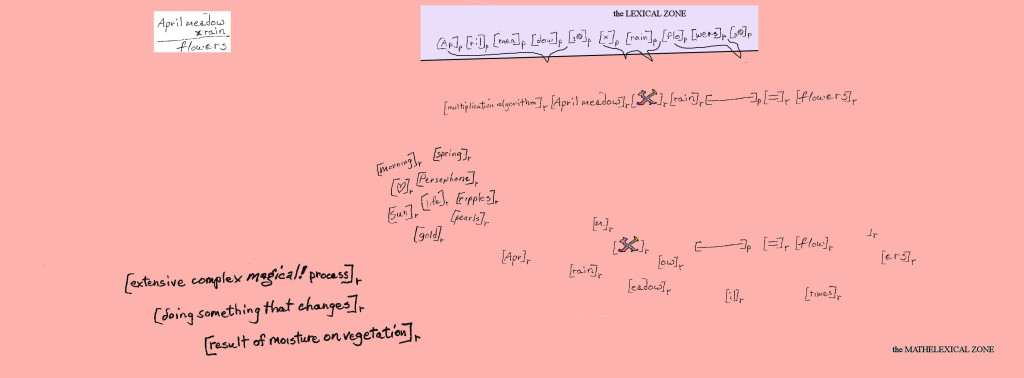 April meadow
x rain
flowers
the LEXICAL ZONE
[Ap]p [ri]p [mea]p [dow]p [x]p [rain]p [flo]p [wers]p
[multiplication algorithm]r [April meadow]r [ ]r [rain]r [———]p [=]r [flowers]r
[morning]r [spring]r
[♡]r [Persephone]r
[sun]r [life]r [ripples]r
[pearls]r
[gold]r
[m]r
[ ]r [———]p [=]r [flow]r ]r
[Apr]r [ow]r [ers]r
[rain]r
[eadow]r [il]r [times]r
[extensive complex magical! process]r
[doing something that changes]r
[result of moisture on vegetation]r
the MATHELEXICAL ZONE